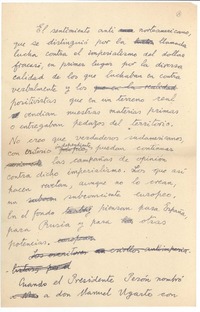 El sentimiento anti norteamericano,
que se distinguió por la llamada
lucha contra el imperialismo del dollar
fracasó, en primer lugar por la diversa
calidad de los que luchaban en contra
verbalmente y los
positivistas que en un terreno real
vendían nuestras materias primas
o entregaban pedazos del territorio.
No creo que verdaderos sudamericanos
con criterio independiente puedan continuar
las campañas de opinión
contra dicho imperialismo. Los que así
hacen revelan, aunque no lo crean,
un subconsciente europeo.
En el fondo piensan para España,
para Rusia y para otras
potencias.
Los escritores
Cuando el Presidente Perón nombró
a don Manuel Ugarte con